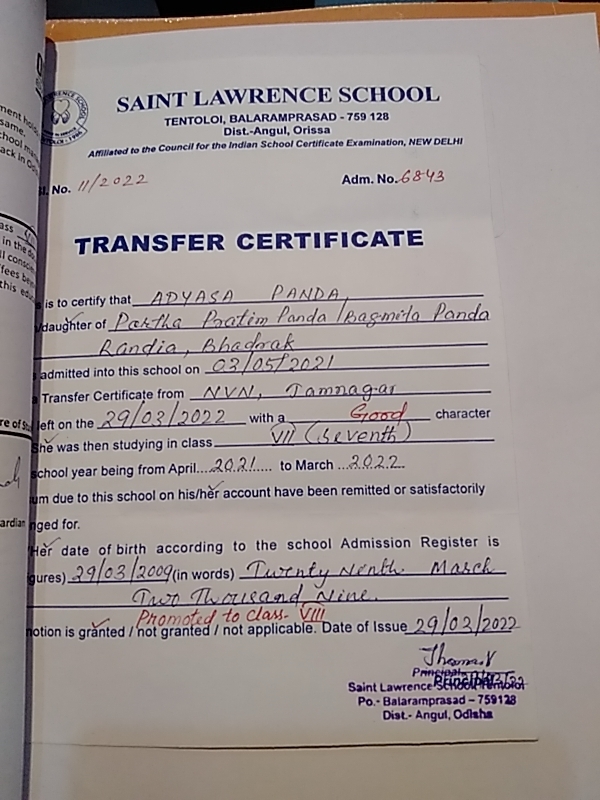 SAINT LAWRENCE SCHOOL
TENTOLOI, BALARAMPRASAD - 759 128
Dist.-Angul, Orissa
Affiliated to the Council for the Indian School Certificate Examination, NEW DELHI
No. 11/2022 Adm. No. 6843
TRANSFER CERTIFICATE
is to certify that ADYASA PANDA
/daughter of Partha Pratim Panda / Bagmita Panda
Randia, Bhadrak
admitted into this school on 03/05/2021
Transfer Certificate from NVN, Jamnagar
left on the 29/03/2022 with a Good character
She was then studying in class VII (Seventh)
school year being from April....2021.... to March ...2022
um due to this school on his/her account have been remitted or satisfactorily
nged for.
Her date of birth according to the school Admission Register is
gures) 29/03/2009 (in words) Twenty Ninth March
Two Thousand Nine.
Promoted to class- VIII
notion is granted / not granted / not applicable. Date of Issue 29/03/2022
Principal
Saint Lawrence School Tentoloi
Po.- Balaramprasad – 759128
Dist.- Angul, Odisha